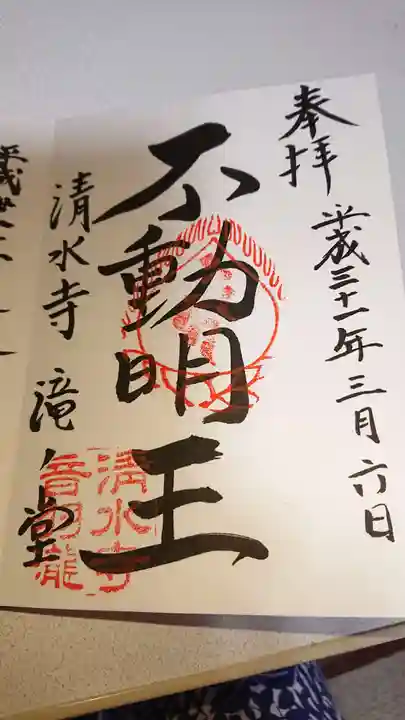 奉拝
平成三十一年三月六日
不動明王
清水寺 滝ノ堂
清水寺
音羽瀧